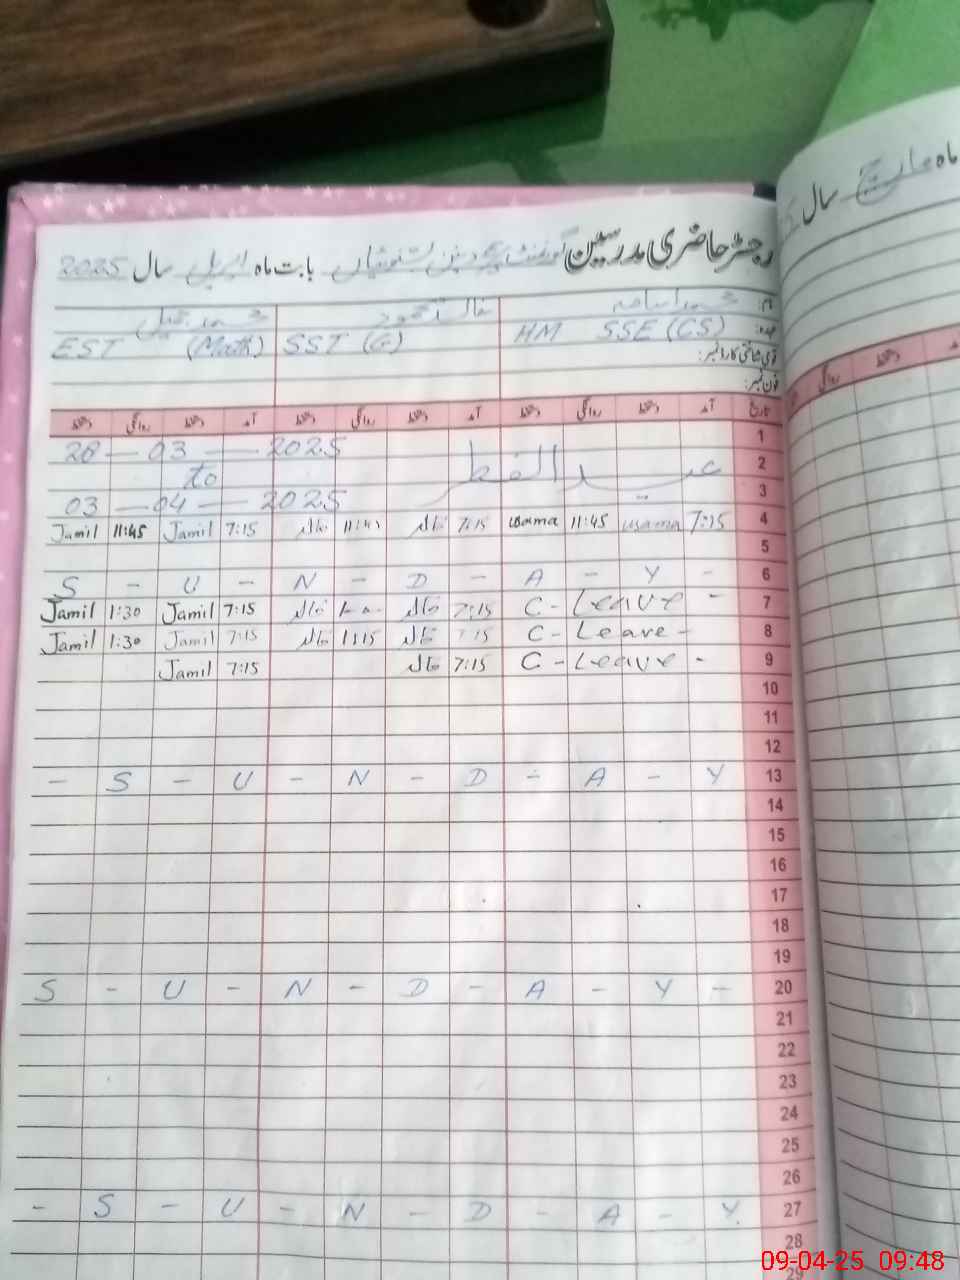 رجسٹر حاضری مدرسین گورنمنٹ بابت ماہ اپریل سال 2025
ماہ مارچ سال
نام: محمد اسامہ خالد محمود محمد جمیل
عہدہ: HM SSE (CS) SST (G) EST (Math)
قومی شناختی کارڈ نمبر:
فون نمبر:
تاریخ آمد دستخط روانگی دستخط آمد دستخط روانگی دستخط آمد دستخط روانگی دستخط
روانگی دستخط
1
28 — 03 — 2025
2 عید الفطر
to
3
03 — 04 — 2025
4 7:15 usama 11:45 usama 7:15 خالد 11:45 خالد 7:15 Jamil 11:45 Jamil
5
S - U - N - D - A - Y - 6
C - Leave - 7
7:15 خالد خالد 7:15 Jamil 1:30 Jamil
C - Leave - 8
7:15 خالد 1:15 خالد 7:15 Jamil 1:30 Jamil
C - Leave - 9
7:15 خالد 7:15 Jamil
10
11
12
- S - U - N - D - A - Y 13
14
15
16
17
18
19
S - U - N - D - A - Y - 20
21
22
23
24
25
26
- S - U - N - D - A - Y 27
28
29
09-04-25 09:48